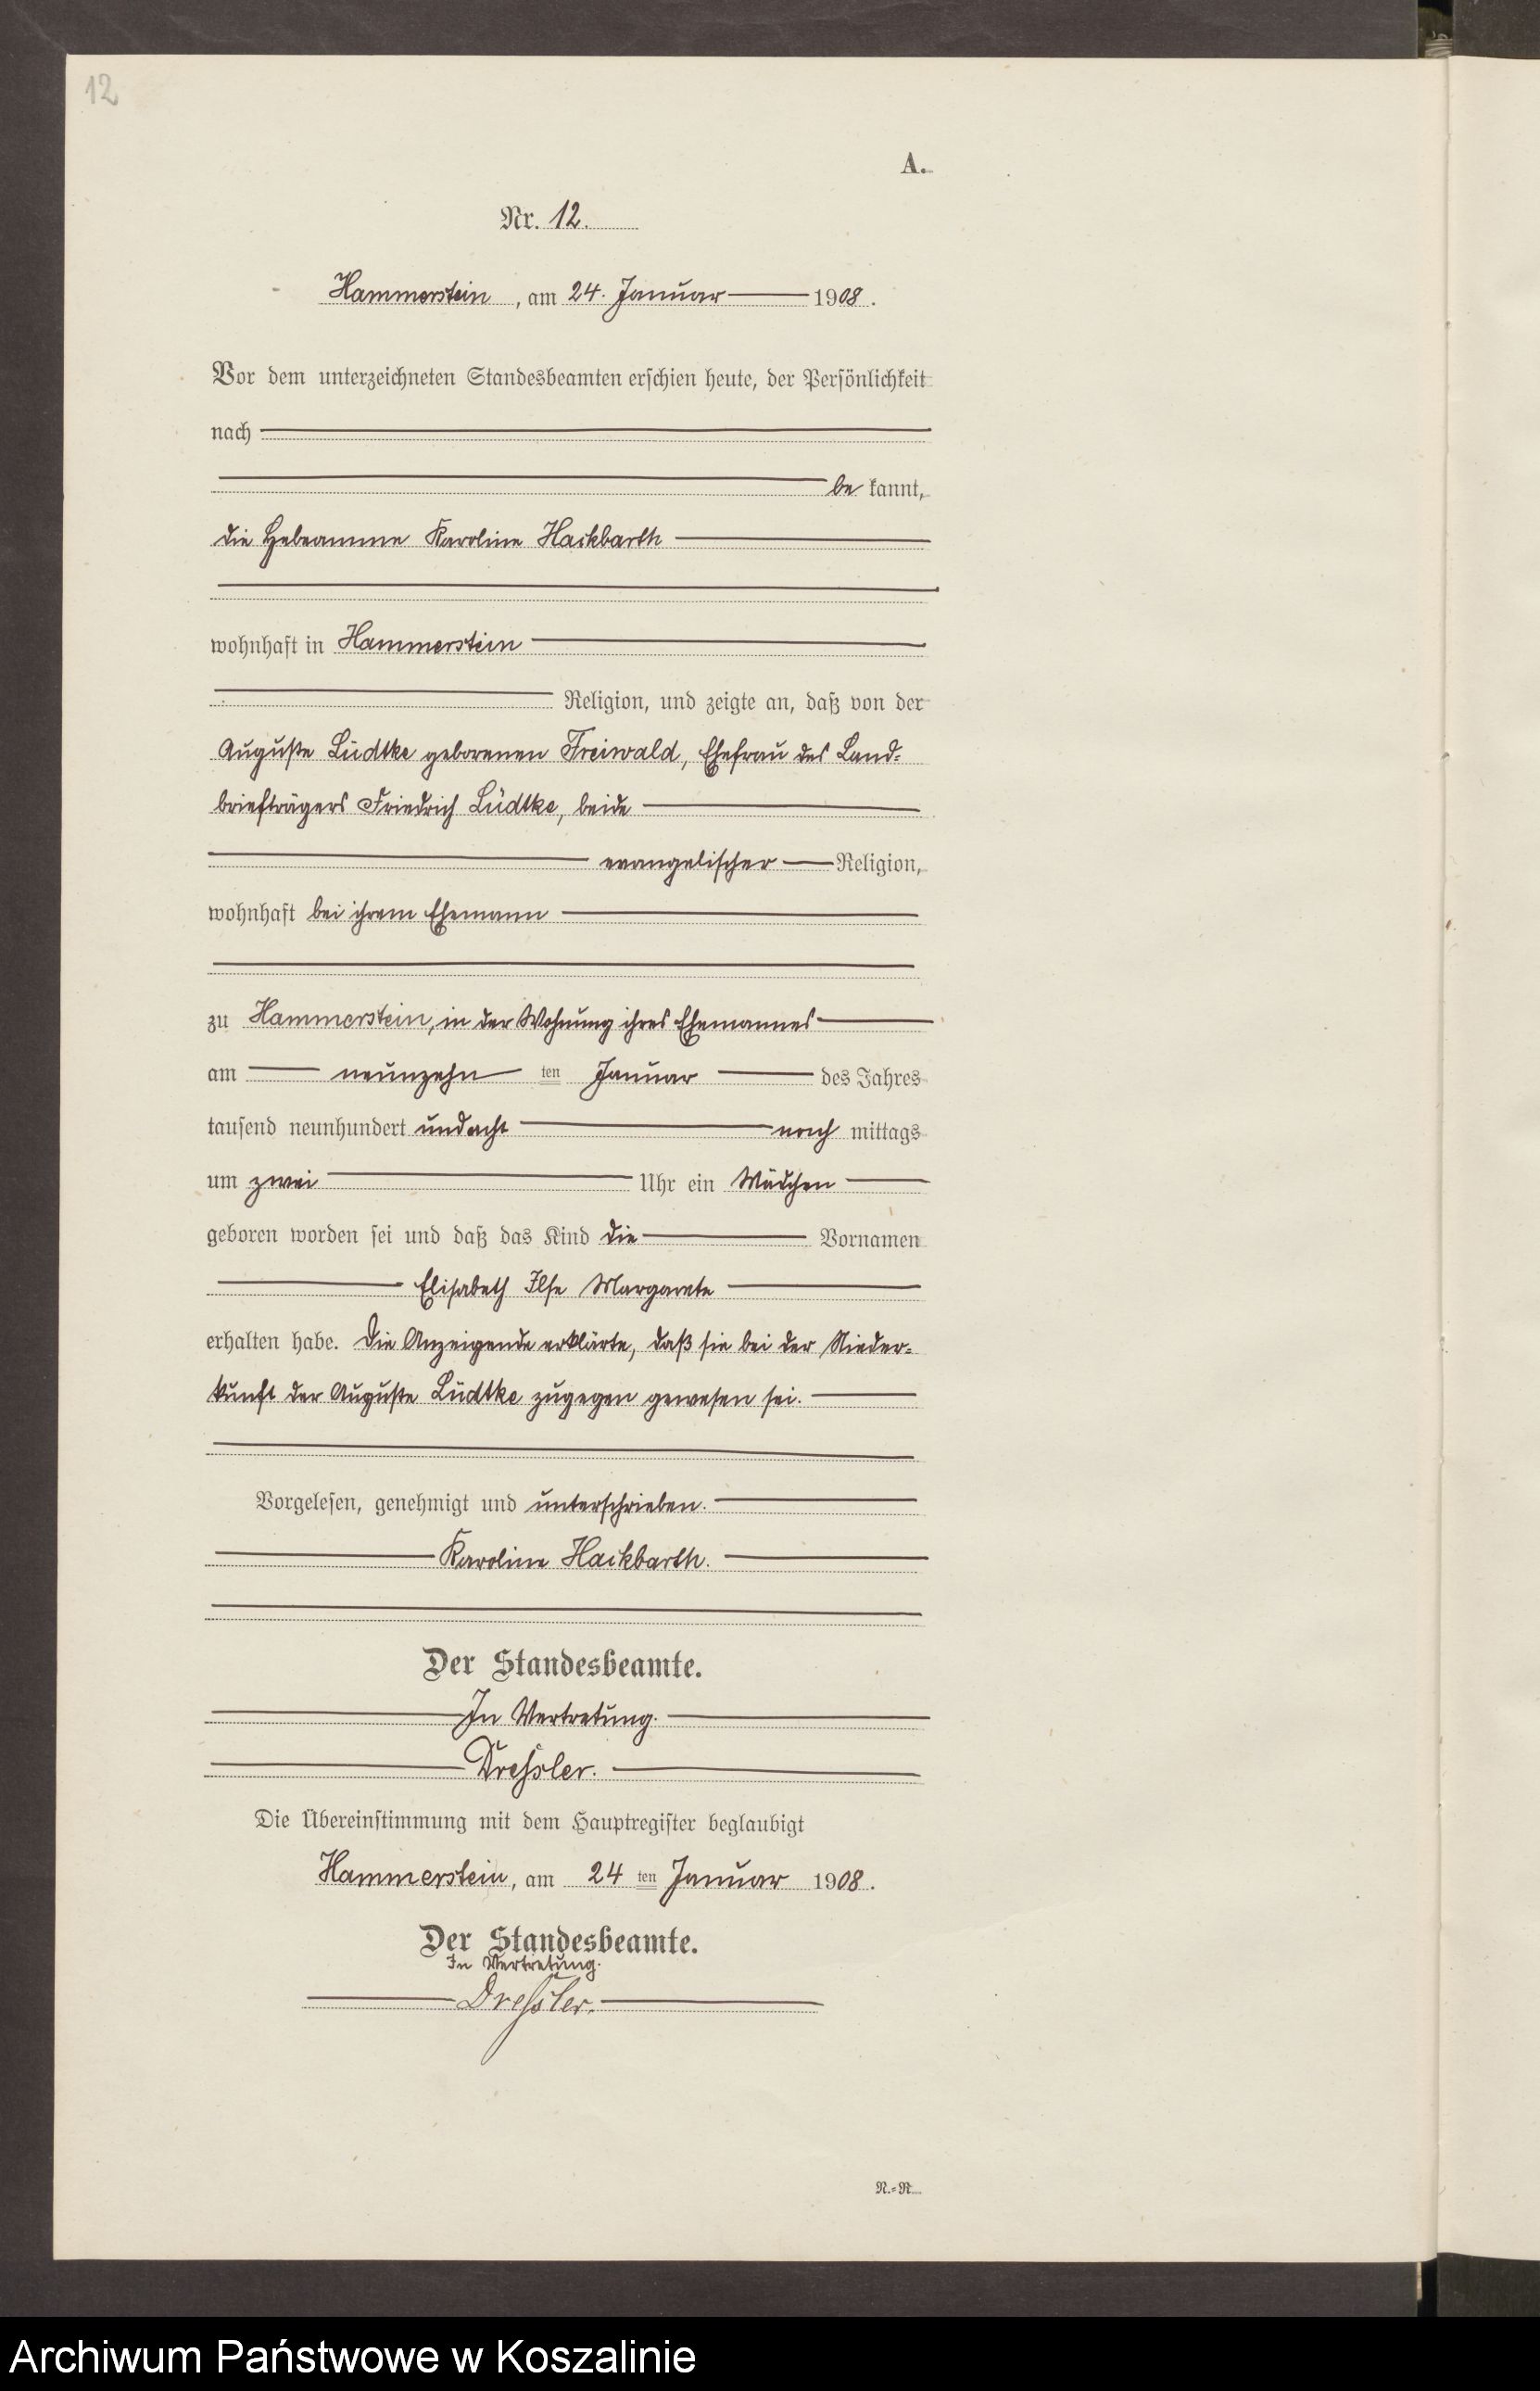 12
A.
Nr. 12.
Hammerstein, am 24. Januar 1908.
Vor dem unterzeichneten Standesbeamten erschien heute, der Persönlichkeit
nach
bekannt,
die Hebeamme Karoline Hackbarth
wohnhaft in Hammerstein
Religion, und zeigte an, daß von der
Auguste Lüdtke geborenen Freiwald, Ehefrau des Land-
briefträgers Friedrich Lüdtke, beide
evangelischer Religion,
wohnhaft bei ihrem Ehemann
zu Hammerstein, in der Wohnung ihres Ehemannes
am neunzehnten Januar des Jahres
tausend neunhundert und acht nachmittags
um zwei Uhr ein Mädchen
geboren worden sei und daß das Kind die Vornamen
Elisabeth Ilse Margarete
erhalten habe. Die Anzeigende erklärte, daß sie bei der Nieder-
kunft der Auguste Lüdtke zugegen gewesen sei.
Vorgelesen, genehmigt und unterschrieben.
Karoline Hackbarth.
Der Standesbeamte.
In Vertretung.
Dressler.
Die Übereinstimmung mit dem Hauptregister beglaubigt
Hammerstein, am 24ten Januar 1908.
Der Standesbeamte.
In Vertretung.
Dressler.
N.-R.
Archiwum Państwowe w Koszalinie